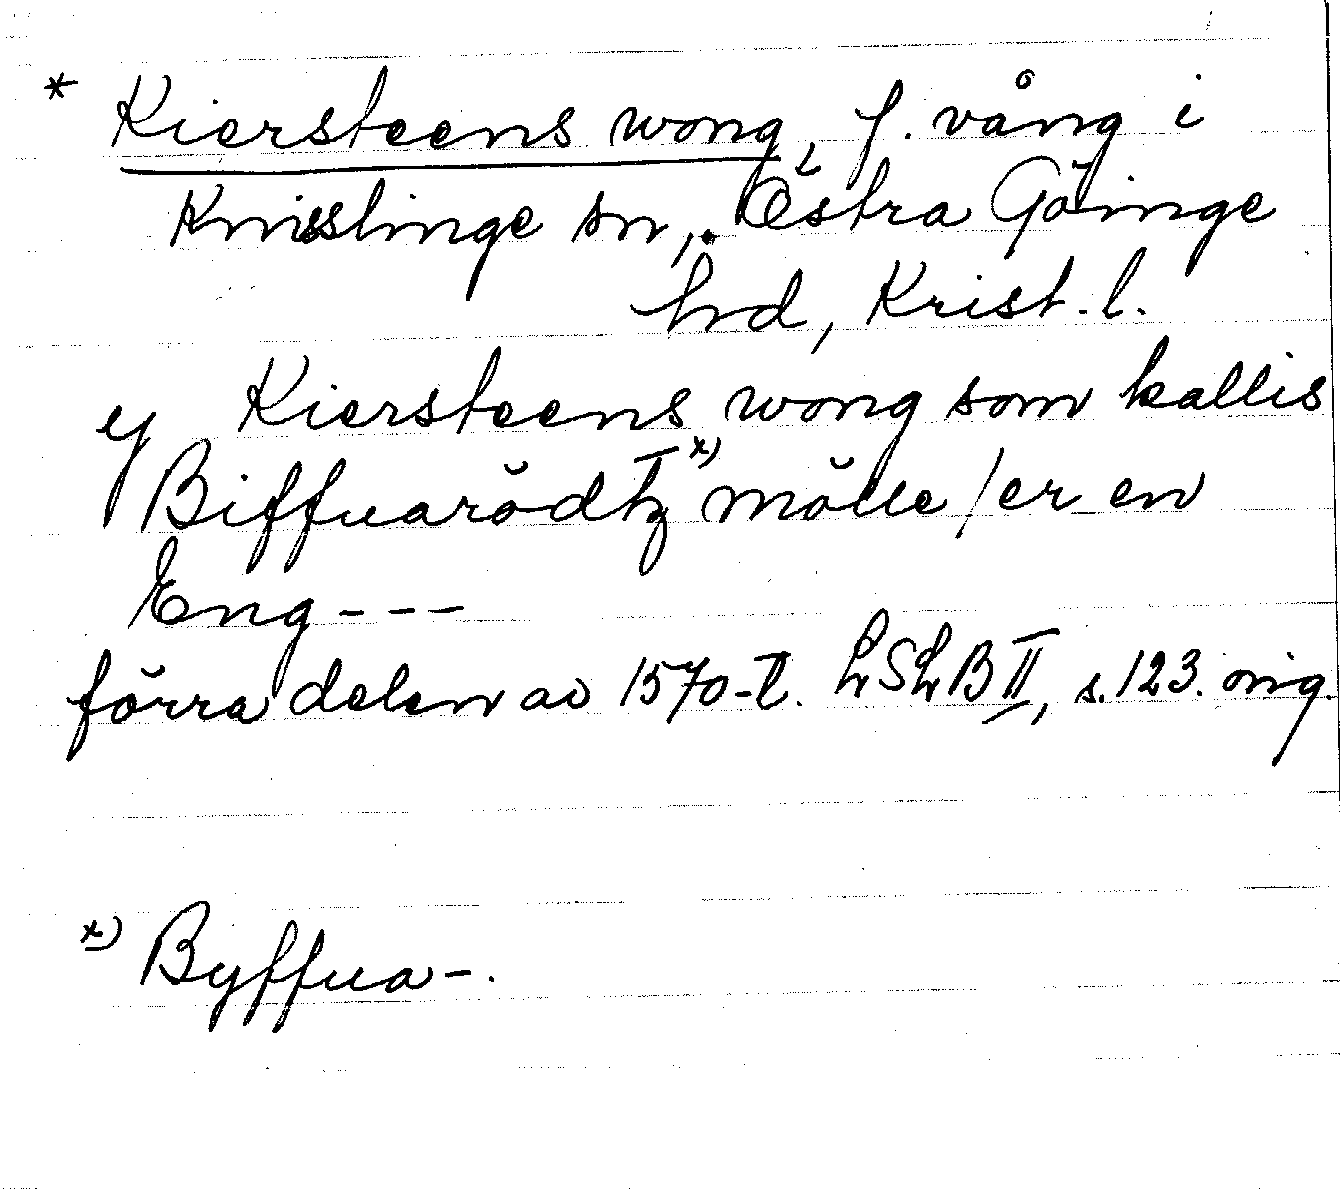 * Kiersteens wong, f. vång i
Knislinge sn, Östra Göinge
hd, Krist. l.
ey Kiersteens wong som kallis
Biffuarödtz x) mölle / er en
Eng - - -
förra delen av 1570-t. LSLB II, s. 123. orig.
x) Byffua-.